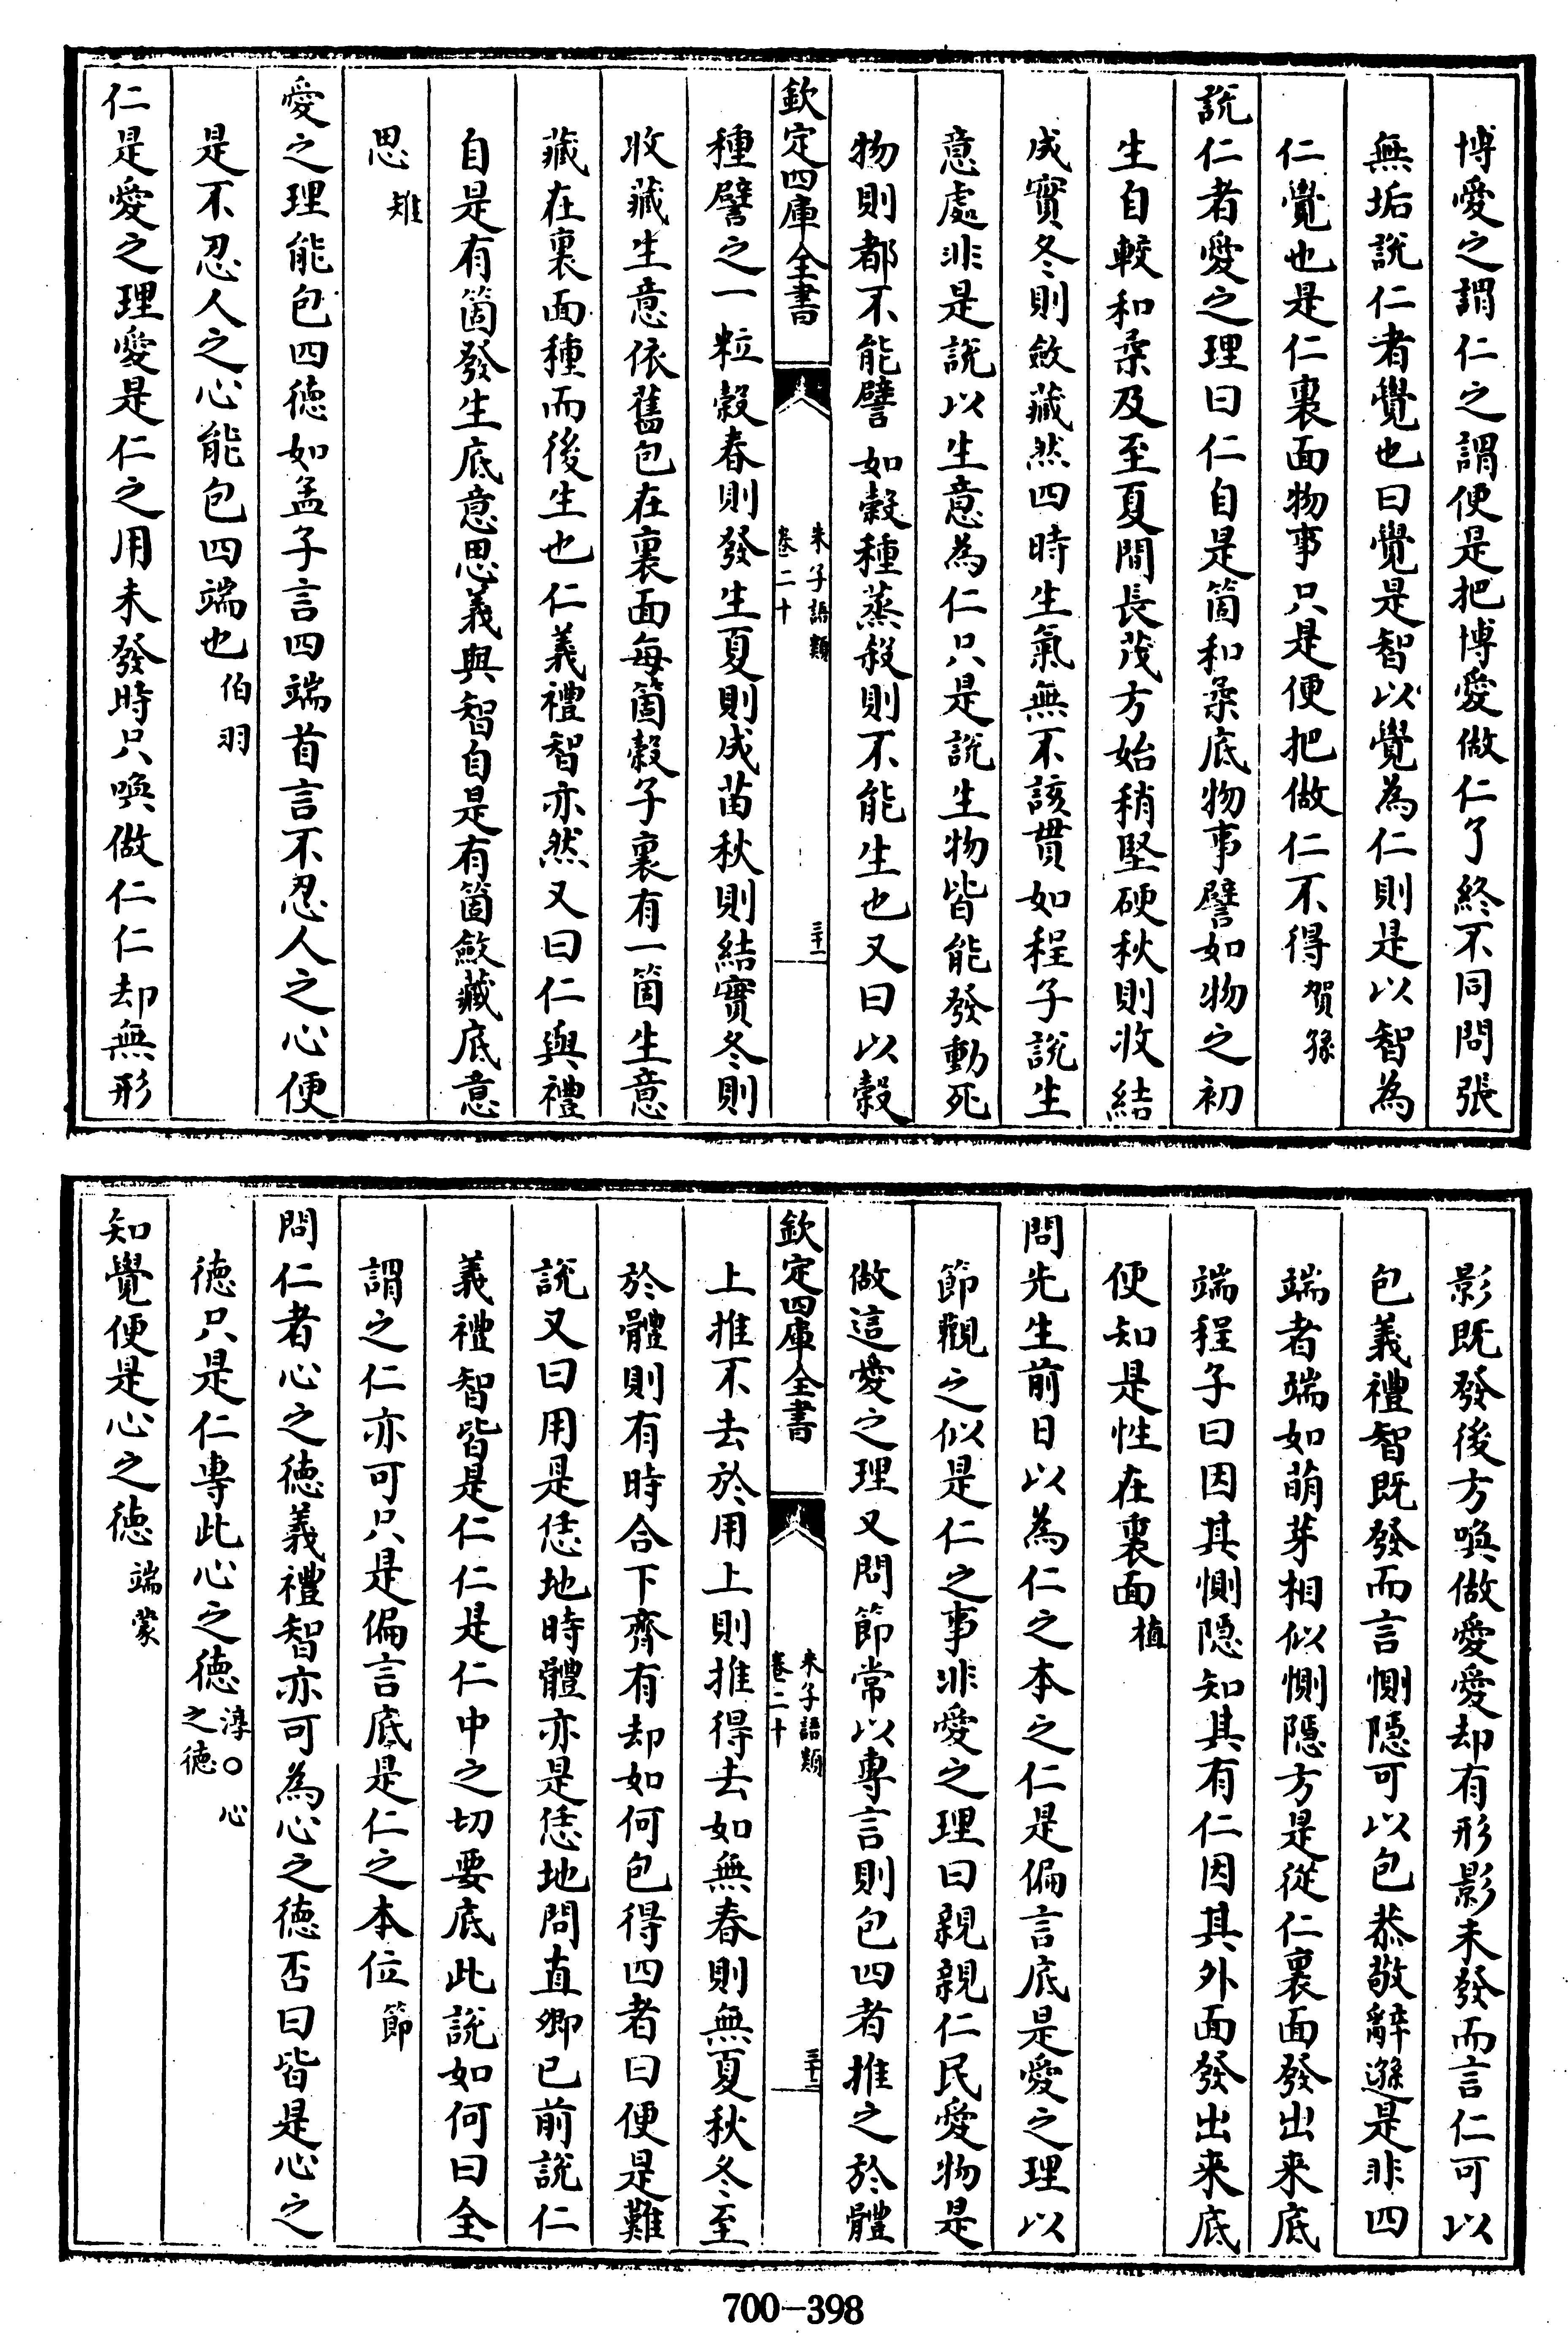 博愛之謂仁之謂便是把博愛做仁了終不同問張
無垢説仁者覺也曰覺是智以覺為仁則是以智為
仁覺也是仁裏面物事只是便把做仁不得賀孫
説仁者愛之理曰仁自是箇和柔底物事譬如物之初
生自較和柔及至夏間長茂方始稍堅硬秋則收結
成實冬則斂藏然四時生氣無不該貫如程子説生
意處非是説以生意為仁只是説生物皆能發動死
物則都不能譬如穀種蒸殺則不能生也又曰以穀
欽定四庫全書
朱子語類
卷二十
三十一
種譬之一粒穀春則發生夏則成苗秋則結實冬則
收藏生意依舊包在裏面每箇穀子裏有一箇生意
藏在裏面種而後生也仁義禮智亦然又曰仁與禮
自是有箇發生底意思義與智自是有箇斂藏底意
思雉
愛之理能包四徳如孟子言四端首言不忍人之心便
是不忍人之心能包四端也伯羽
仁是愛之理愛是仁之用未發時只喚做仁仁却無形
影既發後方喚做愛愛却有形影未發而言仁可以
包義禮智既發而言惻隠可以包恭敬辭遜是非四
端者端如萌芽相似惻隠方是從仁裏面發出來底
端程子曰因其惻隠知其有仁因其外面發出來底
便知是性在裏面植
問先生前日以為仁之本之仁是偏言底是愛之理以
節觀之似是仁之事非愛之理曰親親仁民愛物是
做這愛之理又問節常以專言則包四者推之於體
欽定四庫全書
朱子語類
卷二十
三十二
上推不去於用上則推得去如無春則無夏秋冬至
於體則有時合下齊有却如何包得四者曰便是難
説又曰用是恁地時體亦是恁地問直卿已前説仁
義禮智皆是仁仁是仁中之切要底此説如何曰全
謂之仁亦可只是偏言底是仁之本位節
問仁者心之徳義禮智亦可為心之徳否曰皆是心之
徳只是仁専此心之徳淳○心之徳
知覺便是心之徳端蒙
700-398